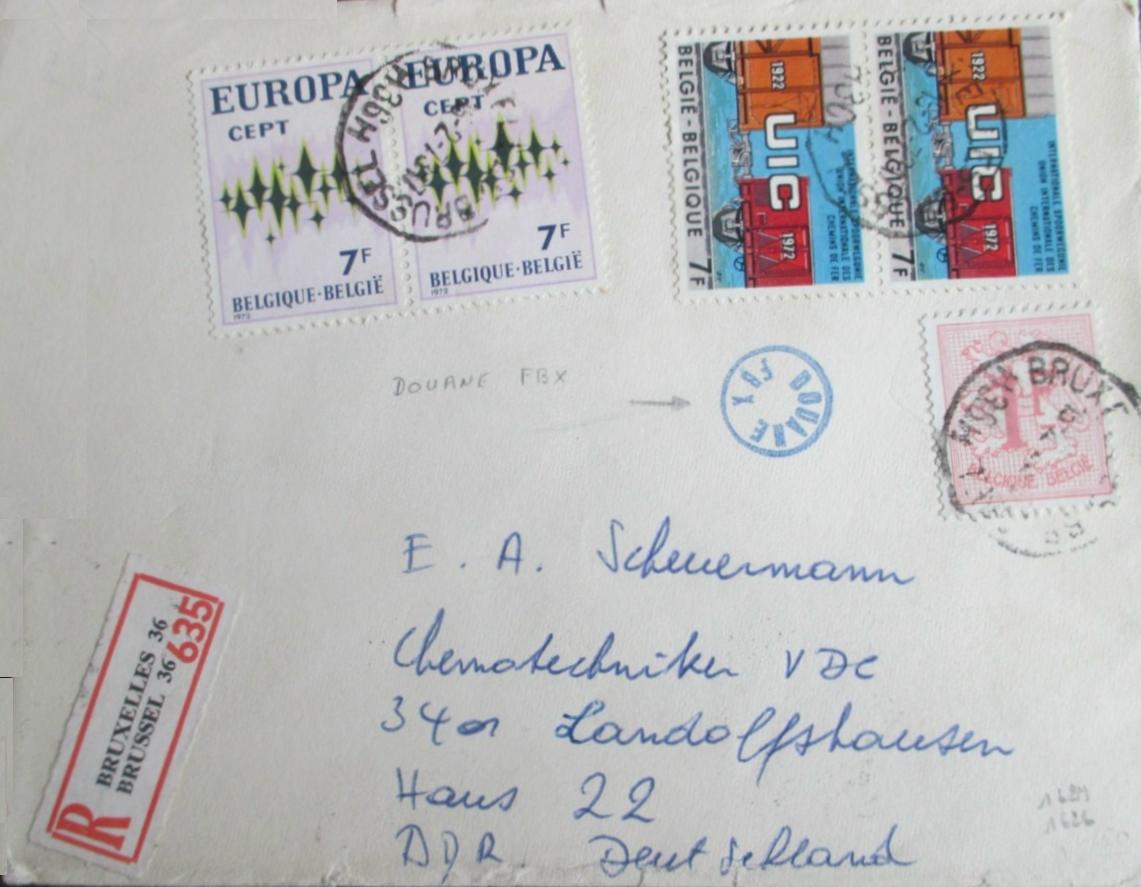 EUROPA
CEPT
7F
BELGIQUE·BELGIË
1972
EUROPA
CEPT
7F
BELGIQUE·BELGIË
1972
BELGIË - BELGIQUE 7F
1922
UIC
1972
INTERNATIONALE SPOORWEGUNIE
UNION INTERNATIONALE DES
CHEMINS DE FER
BELGIË - BELGIQUE 7F
1922
UIC
1972
INTERNATIONALE SPOORWEGUNIE
UNION INTERNATIONALE DES
CHEMINS DE FER
BRUSSEL
DOUANE FBX
DOUANE
FBX
1F
BELGIQUE BELGIË
BRUX
E. A. Scheuermann
Chemotechniker VDC
3401 Landolfshausen
Haus 22
DDR. Deutschland
R
BRUXELLES 36
BRUSSEL 36
635